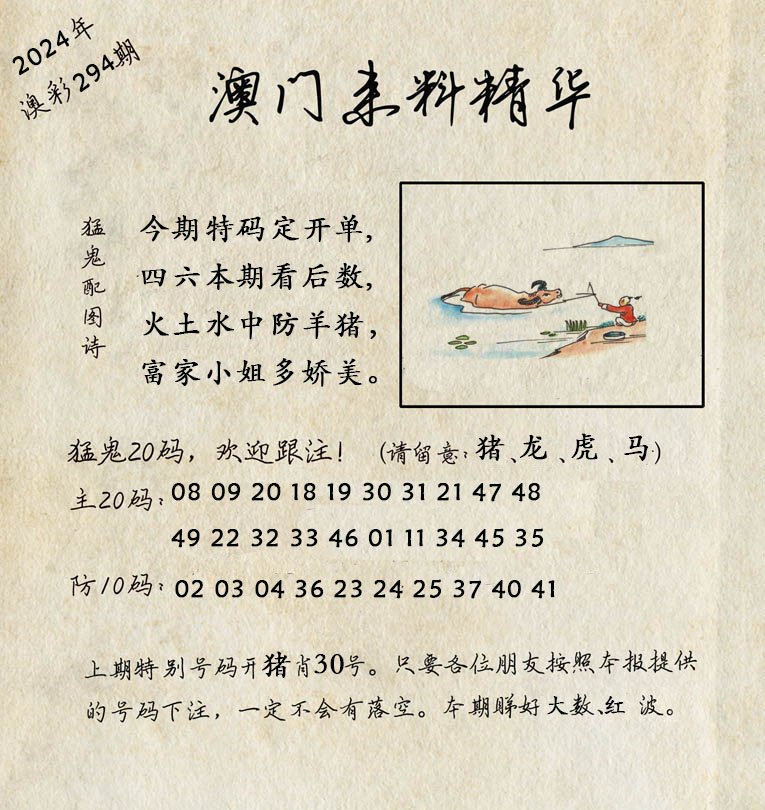 2024年
澳彩294期
澳门来料精华
猛鬼配图诗
今期特码定开单，
四六本期看后数，
火土水中防羊猪，
富家小姐多娇美。
猛鬼20码，欢迎跟注！（请留意：猪、龙、虎、马）
主20码：08 09 20 18 19 30 31 21 47 48
49 22 32 33 46 01 11 34 45 35
防10码：02 03 04 36 23 24 25 37 40 41
上期特别号码开猪肖30号。只要各位朋友按照本报提供
的号码下注，一定不会有落空。本期睇好大数、红 波。